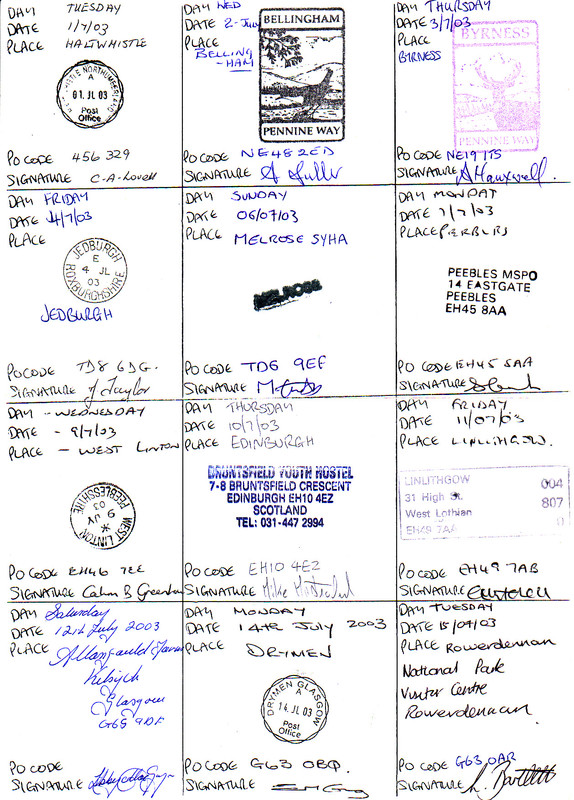 DAY TUESDAY
DATE 1/7/03
PLACE HALTWHISTLE
01 JL 03
A
Post
Office
PO CODE 456 329
SIGNATURE C-A-Lovell
DAY WED
DATE 2-July
PLACE
BELLING
-HAM
BELLINGHAM
PENNINE WAY
PO CODE NE48 2ED
SIGNATURE
DAY THURSDAY
DATE 3/7/03
PLACE
BYRNESS
BYRNESS
PENNINE WAY
PO CODE NE19 1TS
SIGNATURE
DAY FRIDAY
DATE 4/7/03
PLACE
JEDBURGH
E
4 JL
03
ROXBURGHSHIRE
JEDBURGH
PO CODE TD8 6DG.
SIGNATURE J Taylor
DAY SUNDAY
DATE 06/07/03
PLACE MELROSE SYHA
MELROSE
PO CODE TD6 9EF
SIGNATURE
DAY MONDAY
DATE 7/7/03
PLACE PEEBLES
PEEBLES MSPO
14 EASTGATE
PEEBLES
EH45 8AA
PO CODE EH45 8AA
SIGNATURE
DAY - WEDNESDAY
DATE - 9/7/03
PLACE - WEST LINTON
WEST LINTON
9 JY
03
PEEBLESSHIRE
PO CODE EH46 7EE
SIGNATURE
DAY THURSDAY
DATE 10/7/03
PLACE EDINBURGH
BRUNTSFIELD YOUTH HOSTEL
7-8 BRUNTSFIELD CRESCENT
EDINBURGH EH10 4EZ
SCOTLAND
TEL: 031-447 2994
PO CODE EH10 4EZ
SIGNATURE Mike
DAY FRIDAY
DATE 11/07/03
PLACE LINLITHGOW.
LINLITHGOW 004
31 High St. 807
West Lothian 0
EH49 7AA
PO CODE EH49 7AB
SIGNATURE
DAY Saturday
DATE 12th July 2003
PLACE
Kilsyth
Glasgow
G65 9DF
PO CODE
SIGNATURE
DAY MONDAY
DATE 14th JULY 2003
PLACE DRYMEN
DRYMEN GLASGOW
A
14 JL 03
Post
Office
PO CODE G63 0BQ.
SIGNATURE
DAY TUESDAY
DATE 15/07/03
PLACE Rowerdennan
National Park
Visitor Centre
Rowerdennan.
PO CODE G63 0AR
SIGNATURE L. Bartlett